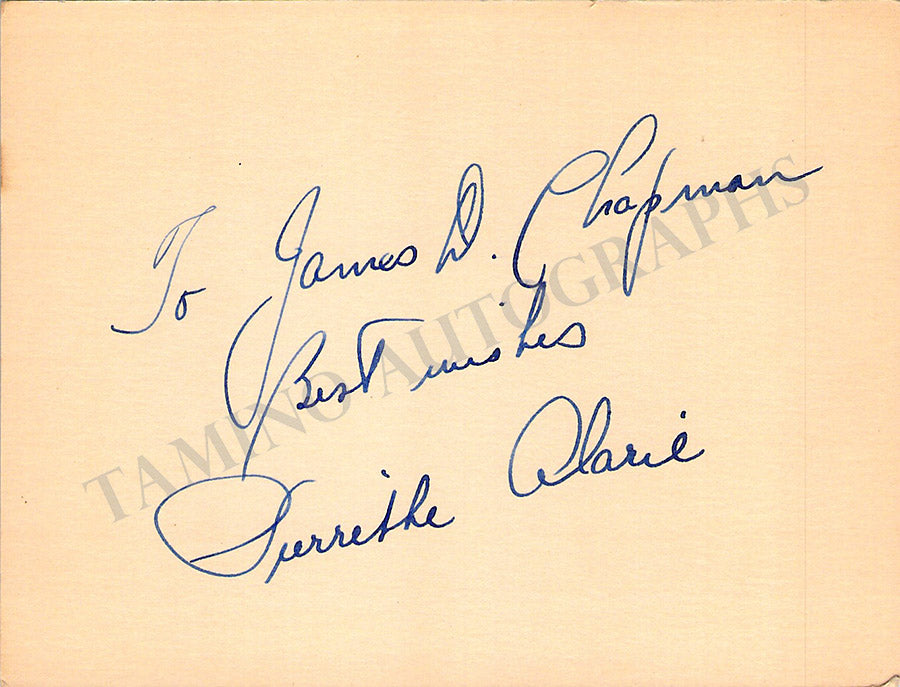 To James D. Chapman
Best wishes
Pierrette Alarie
TAMINO AUTOGRAPHS